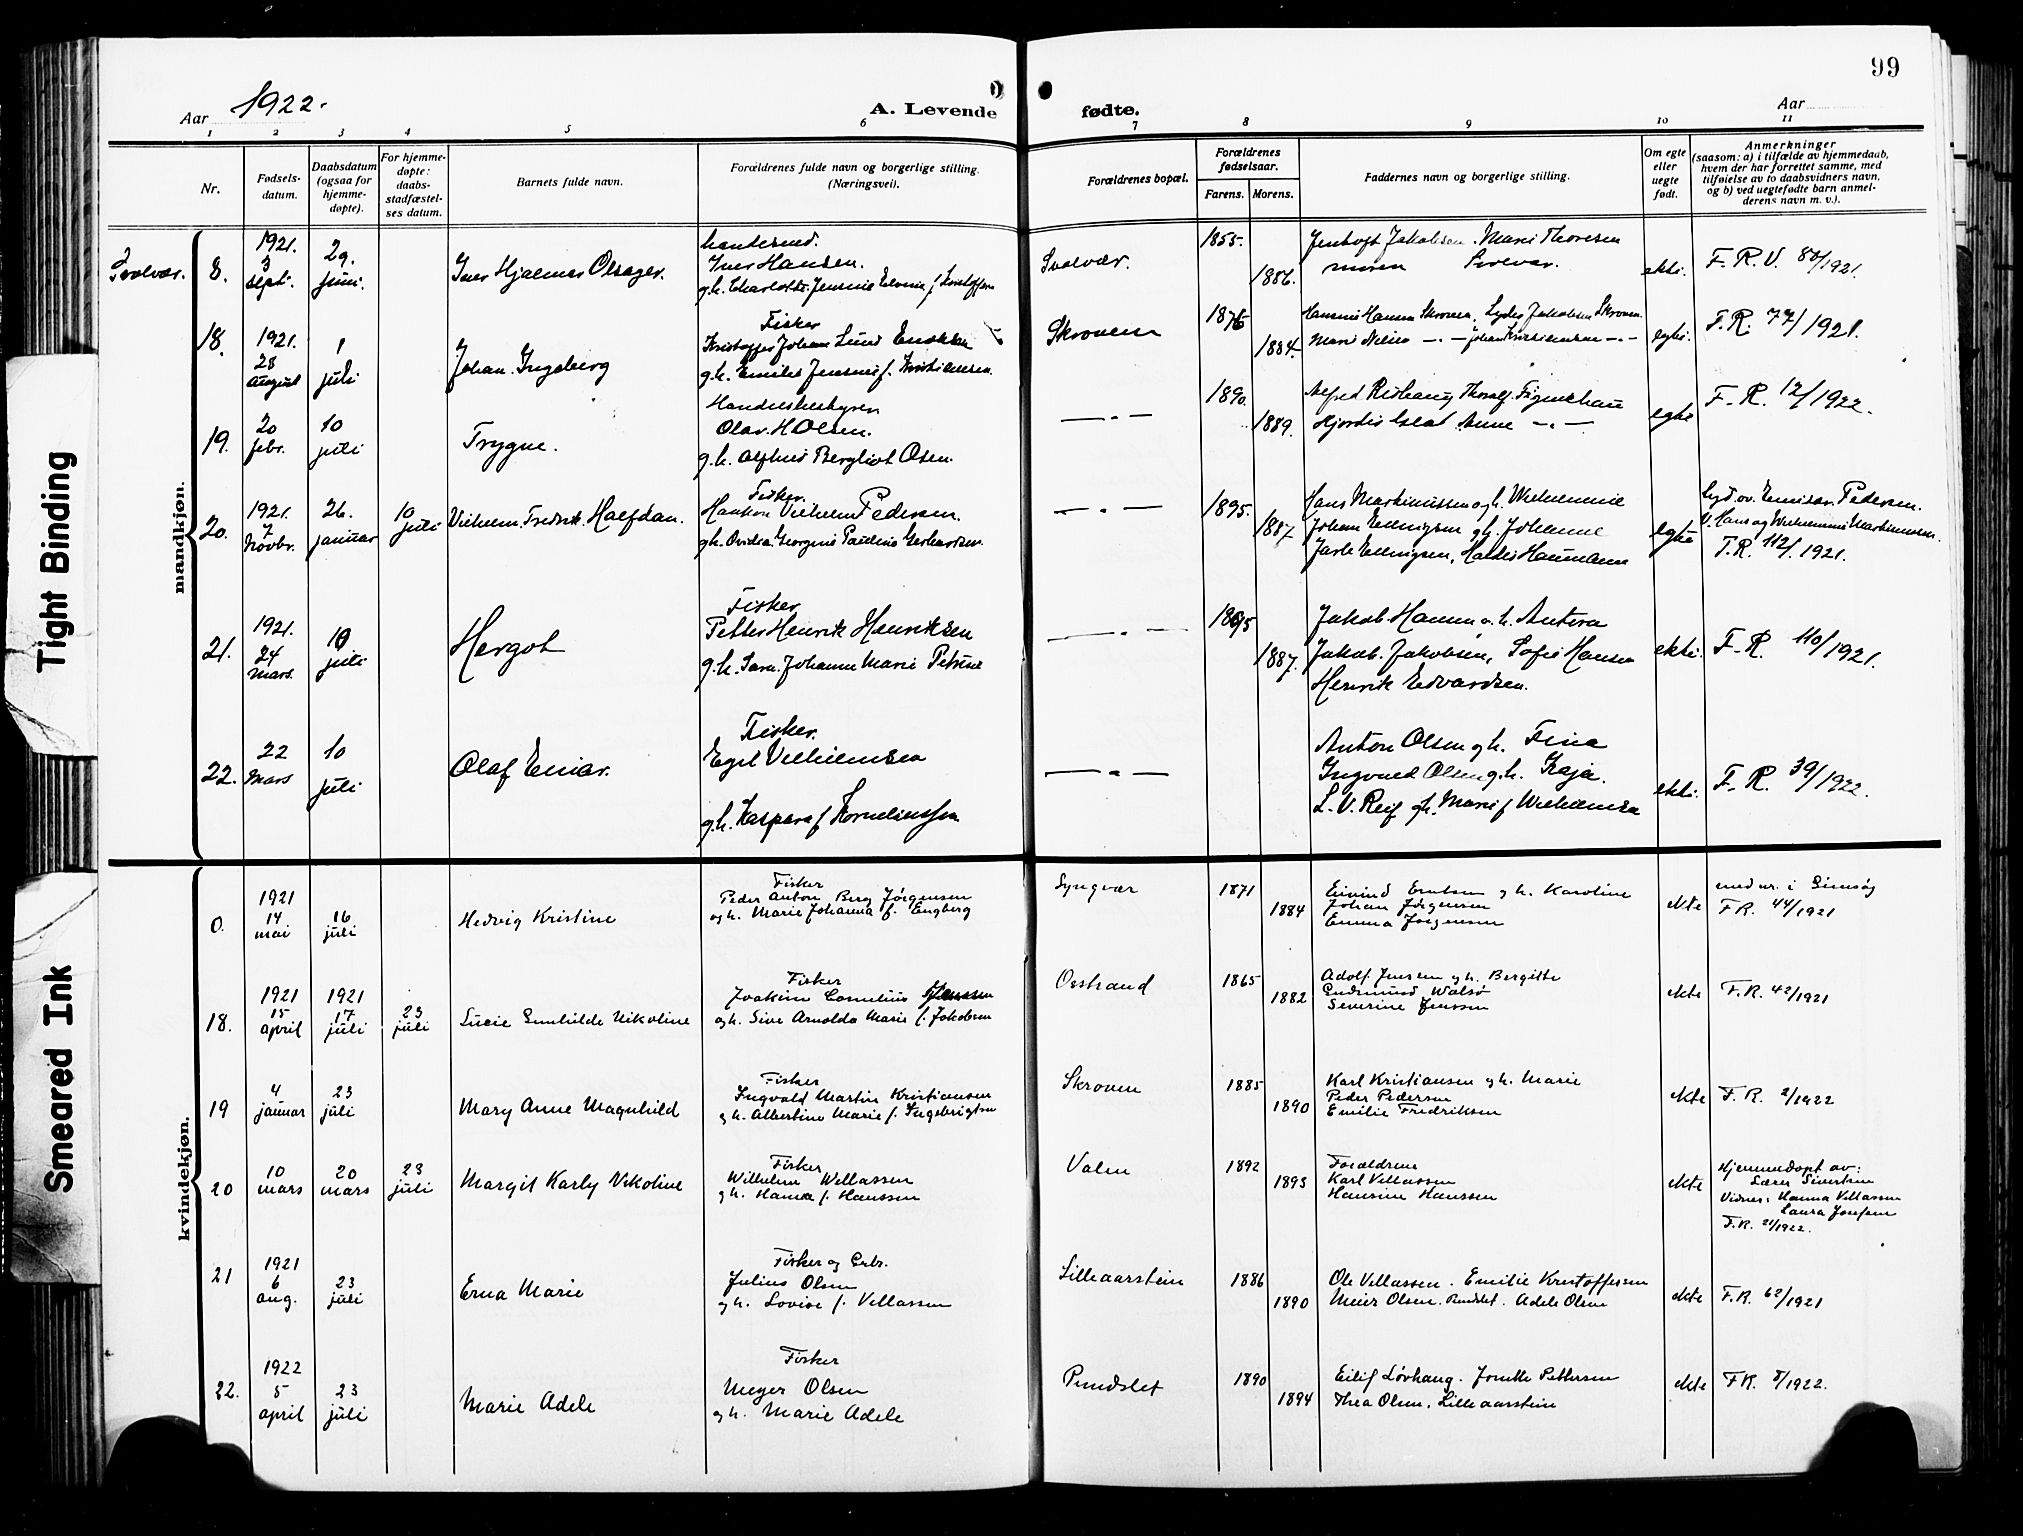 99
Aar 1922.
A. Levende fødte.
Aar
1 2 3 4 5 6 7 8 9 10 11
Nr.
Fødsels-
datum.
Daabsdatum
(ogsaa for
hjemme-
døpte).
For hjemme-
døpte:
daabs-
stadfæstel-
ses datum.
Barnets fulde navn.
Forældrenes fulde navn og borgerlige stilling.
(Næringsvei).
Forældrenes bopæl.
Forældrenes
fødselsaar.
Farens. Morens.
Faddernes navn og borgerlige stilling.
Om egte
eller
uegte
født.
Anmerkninger
(saasom: a) i tilfælde av hjemmedaab,
hvem der har forrettet samme, med
tilføielse av to daabsvidners navn,
og b) ved uegtefødte barn anmel-
derens navn m. v.).
Tight Binding
Smeared Ink
mandkjøn.
Svolvær. 8.
1921.
3
sept.
29.
juni.
Iver Hjalmar
Iver Hansen.
Svolvær.
1855.
1886.
Jentoft Jakobsen. Marie Thoresen
moren Svolvær.
ekte.
F. R. V. 80/1921.
18.
1921.
28
august
1
juli
Johan Ingeberg
Fisker
Kristoffer Johan Lund
g.h. Emilie Jensine f. Kristiansen.
Skroven
1876
1884.
Hansine Hansen Skroven, Lyder Jakobsen Skroven
egte.
F. R. 77/1921.
19.
20
febr.
10
juli
Trygve.
Handelsbestyrer
Olav. H Olsen.
g.h. Bergliot Olsen.
— " —
1890.
1889.
egte
F. R. 12/1922.
20.
1921.
7
Novbr.
26.
januar
10
juli
Vilhelm Fredrik Halfdan.
Fisker.
Haakon Vilhelm Pedersen.
g.h. Ovidia Georgine Pauline Gerhardsen.
— " —
1895.
1887
Hans Martinussen og h. Wilhelmine
Johan Ellingsen g.h. Johanne
Jarle Ellingsen, Haldis Haumann
egte
Pedersen.
V. Hans og Wilhelmine Martinussen.
F. R. 112/1921.
21.
1921.
24
Mars.
10
juli
Hergot
Fisker
Petter Henrik Henriksen
g.h. Sara Johanne Marie Petrine
— " —
1887.
Jakob Hansen o.h. Antora
Jakob. Jakobsen, Sofie Hansen
Henrik Edvardsen.
ekte.
F. R. 110/1921.
22.
22
Mars
10
juli
Olaf Einar.
Fisker.
Egil Vilhelmsen
g.h. Kaspara f Korneliussen
— " —
Anton Olsen g h. Fina
Ingvald Olsen g.h. Kaja.
L. V. Reif gh. Marie f Wilhelmsen
ekte.
F. R. 39/1922.
kvindekjøn.
0.
1921
14
mai
16
juli
Hedvig Kristine
Fisker
Peder Anton Berg Jørgensen
og h. Marie Johanna f. Engberg
Syngvær
1871
1884
Eivind Erntsen og h. Karoline
Johan Jørgensen
Emma Jørgensen
ekte
med nr. i Gimsøy
F R. 44/1921
18.
1921
15
april
1921
17
juli
23
juli
Lucie Gunhilde Nikoline
Fisker
Joakim Cornelius Jenssen
og h. Sive Arnolda Marie f. Jakobsen
Osstrand
1865
1882
Adolf Jensen og h. Bergitte
Gudmund Walsø
Severine Jenssen
ekte
F. R. 42/1921
19
4
januar
23
juli
Mary Anne Magnhild
Fisker
Ingvald Martin Kristiansen
og h. Albertine Marie f. Ingebrigtsen
Skroven
1885
1890
Karl Kristiansen og h. Marie
Peder Pedersen
Emilie Fredriksen
ekte
F. R. 2/1922
20
10
mars
20
mars
23
juli
Margit Karly Nikoline
Fisker
Wilhelm Willassen
og h. Hanna f. Hanssen
Valen
1892
1893
Forældrene
Karl Villassen
Hansine Hanssen
ekte
Hjemmedøpt av:
Lærer Sivertsen
Vidner: Hanna Villassen
Laura Josefsen
F. R. 21/1922.
21
1921
6
aug.
23
juli
Erna Marie
Fisker og Grbr.
Julius Olsen
og h. Lovise f. Villassen
Lilleaarstein
1886
1890
Ole Villassen. Emilie Kristoffersen
Meier Olsen. Pundslet. Adele Olsen
ekte
F. R. 62/1921
22.
1922
5
april
23
juli
Marie Adele
Fisker
Meyer Olsen
og h. Marie Adele
Pundslet
1890
1894
Eilif Løvhaug. Jonette Pettersen
Thea Olsen, Lilleaarstein
ekte
F R. 8/1922.